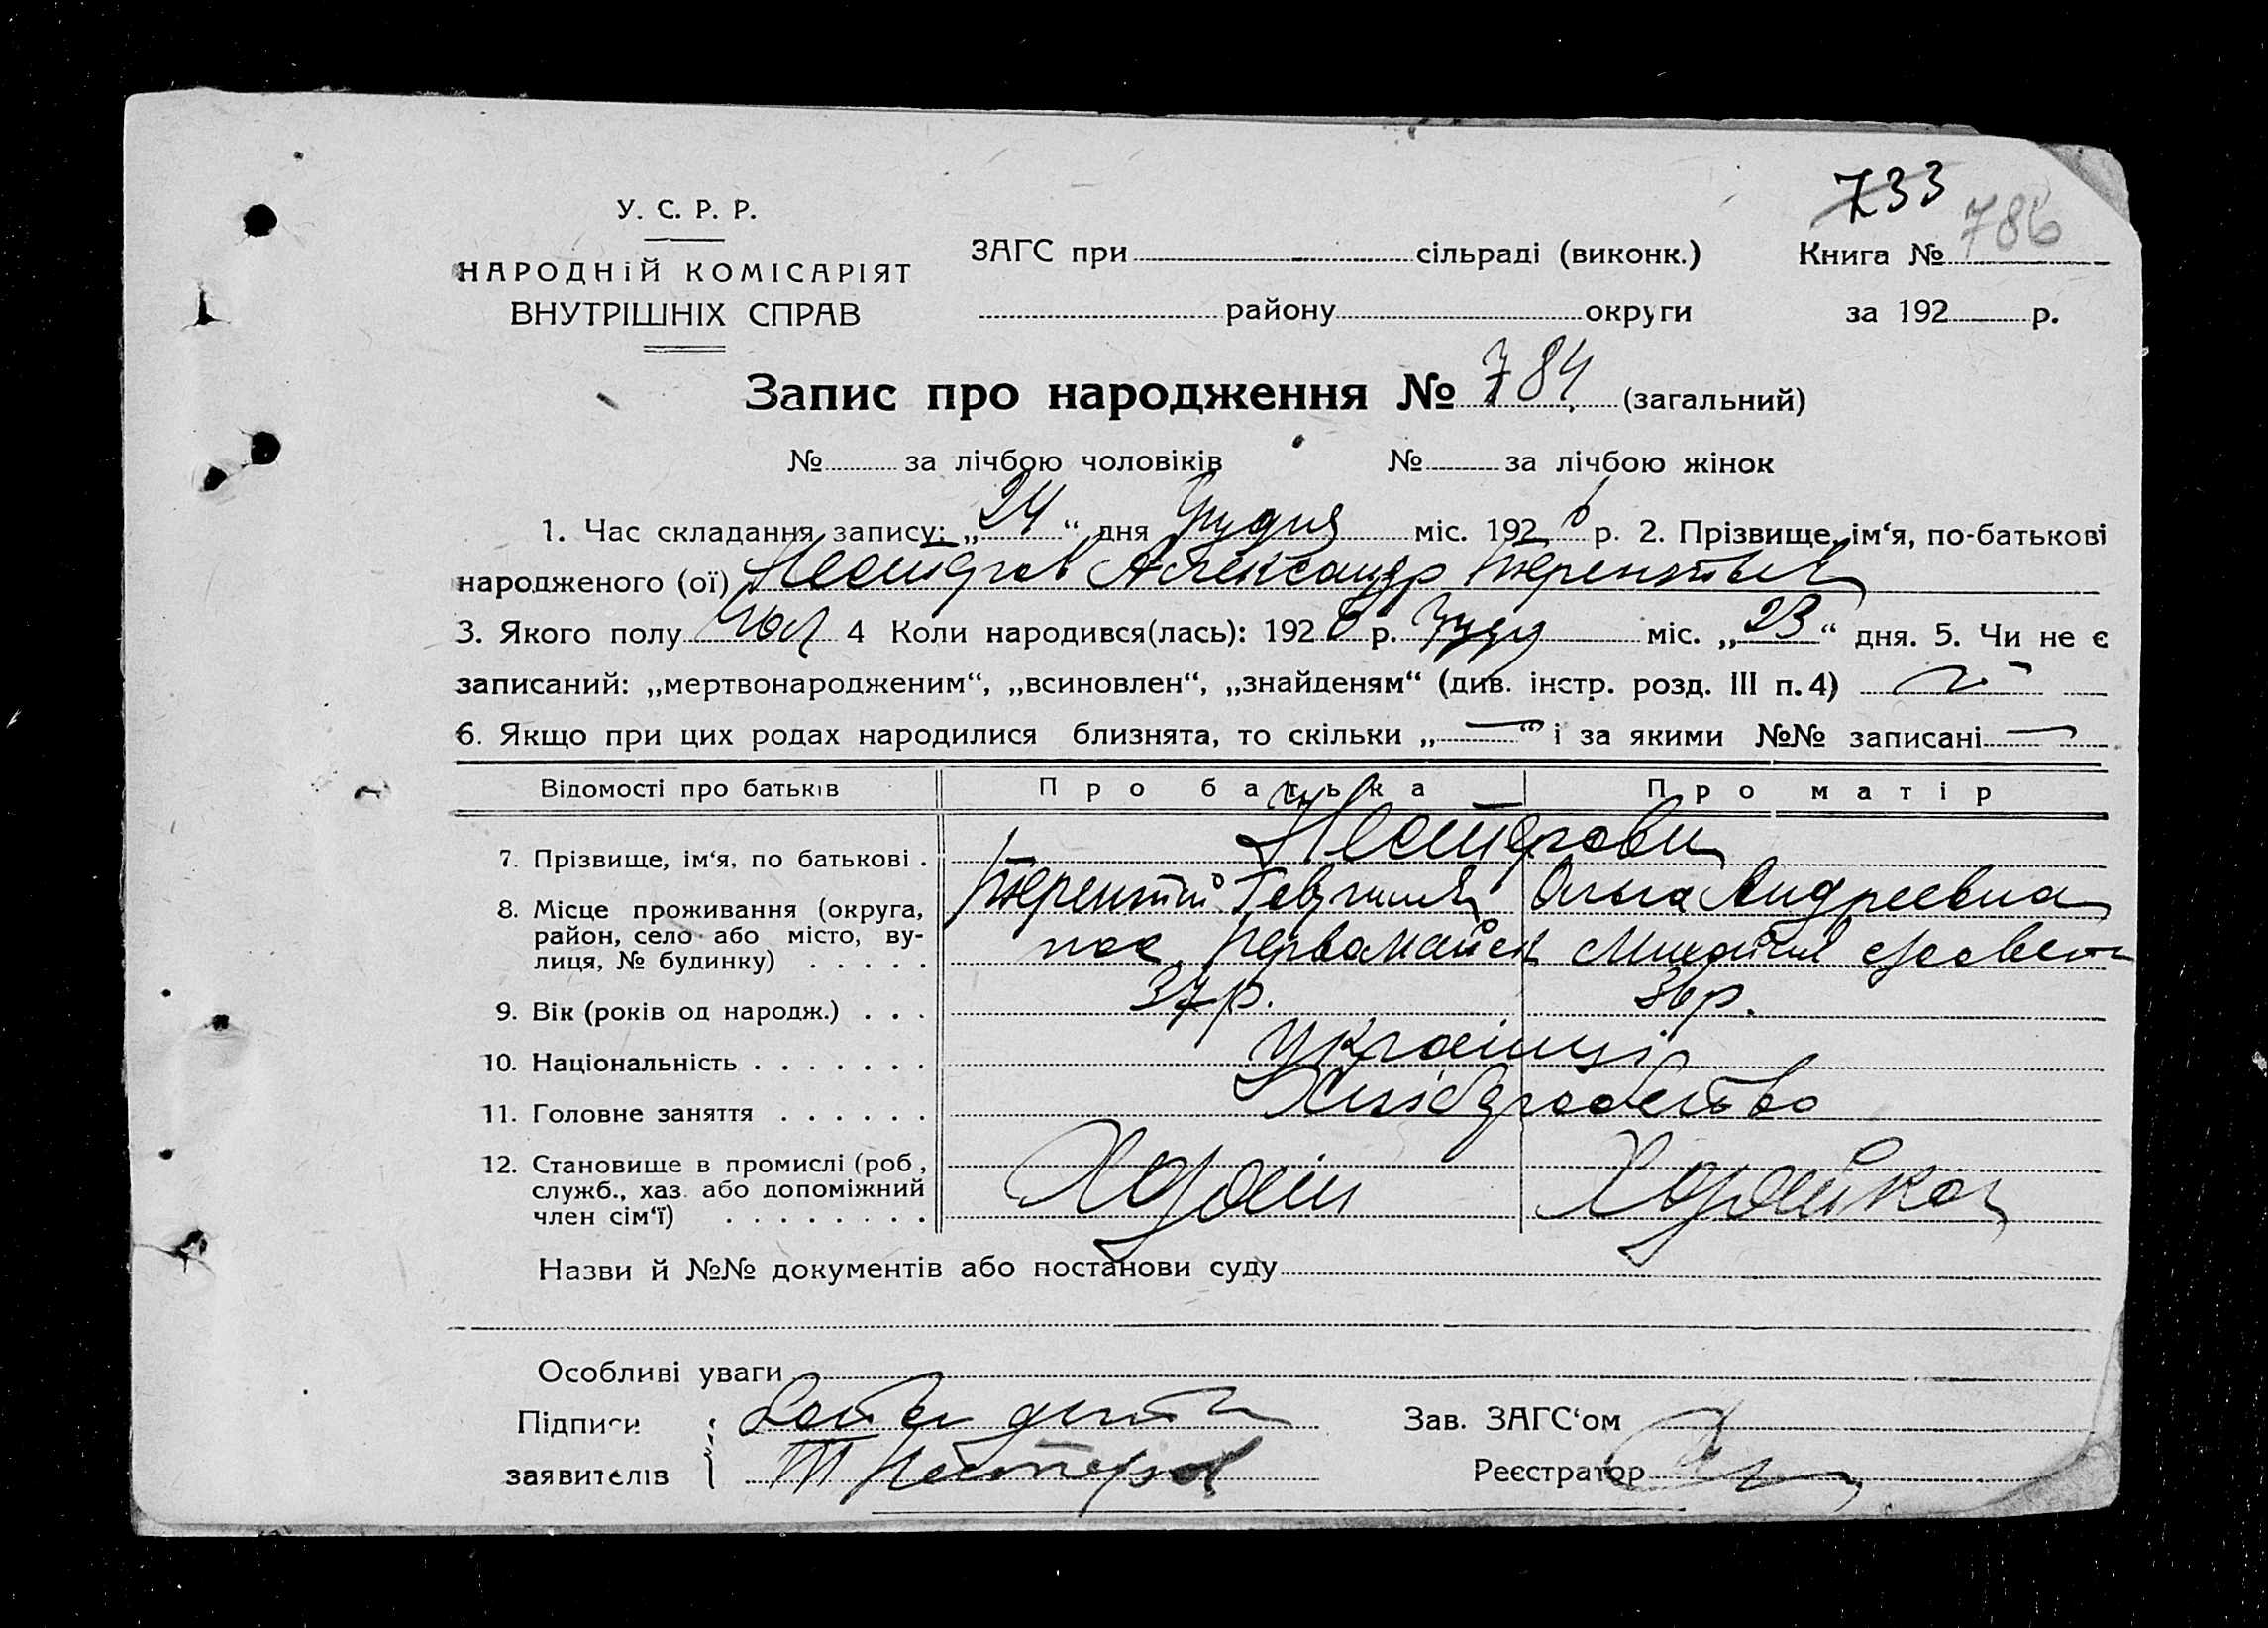 733
786
У. С. Р. Р.
НАРОДНІЙ КОМІСАРІЯТ
ВНУТРІШНІХ СПРАВ
ЗАГС при сільраді (виконк.) Книга №
району округи за 192 р.
Запис про народження № 784 (загальний)
№ за лічбою чоловіків № за лічбою жінок
1. Час складання запису: „24“ дня Грудня міс. 1926 р. 2. Прізвище, ім‘я, по-батькові
народженого (ої) Александр
3. Якого полу Чол 4 Коли народився(лась): 1926 р. Груд міс. „23“ дня. 5. Чи не є
записаний: „мертвонародженим“, „всиновлен“, „знайденям“ (див. інстр. розд. III п.4)
6. Якщо при цих родах народилися близнята, то скільки „—“ і за якими №№ записані —
Відомості про батьків Про батька Про матір
7. Прізвище, ім‘я, по батькові .
Терентій Ольга Андреевна
8. Місце проживання (округа,
район, село або місто, ву-
лиця, № будинку) . . . . . пос. Первомайск
9. Вік (років од народж.) . . . 37 р. 36 р.
10. Національність . . . . . . . українці
11. Головне заняття . . . . . . Хліборобство
12. Становище в промислі (роб.,
служб., хаз. або допоміжний
член сім‘ї) . . . . . . . . Хазяїн Хазяйка
Назви й №№ документів або постанови суду
Особливі уваги
Підписи
заявителів Т Нестеров
Зав. ЗАГС‘ом
Реєстратор